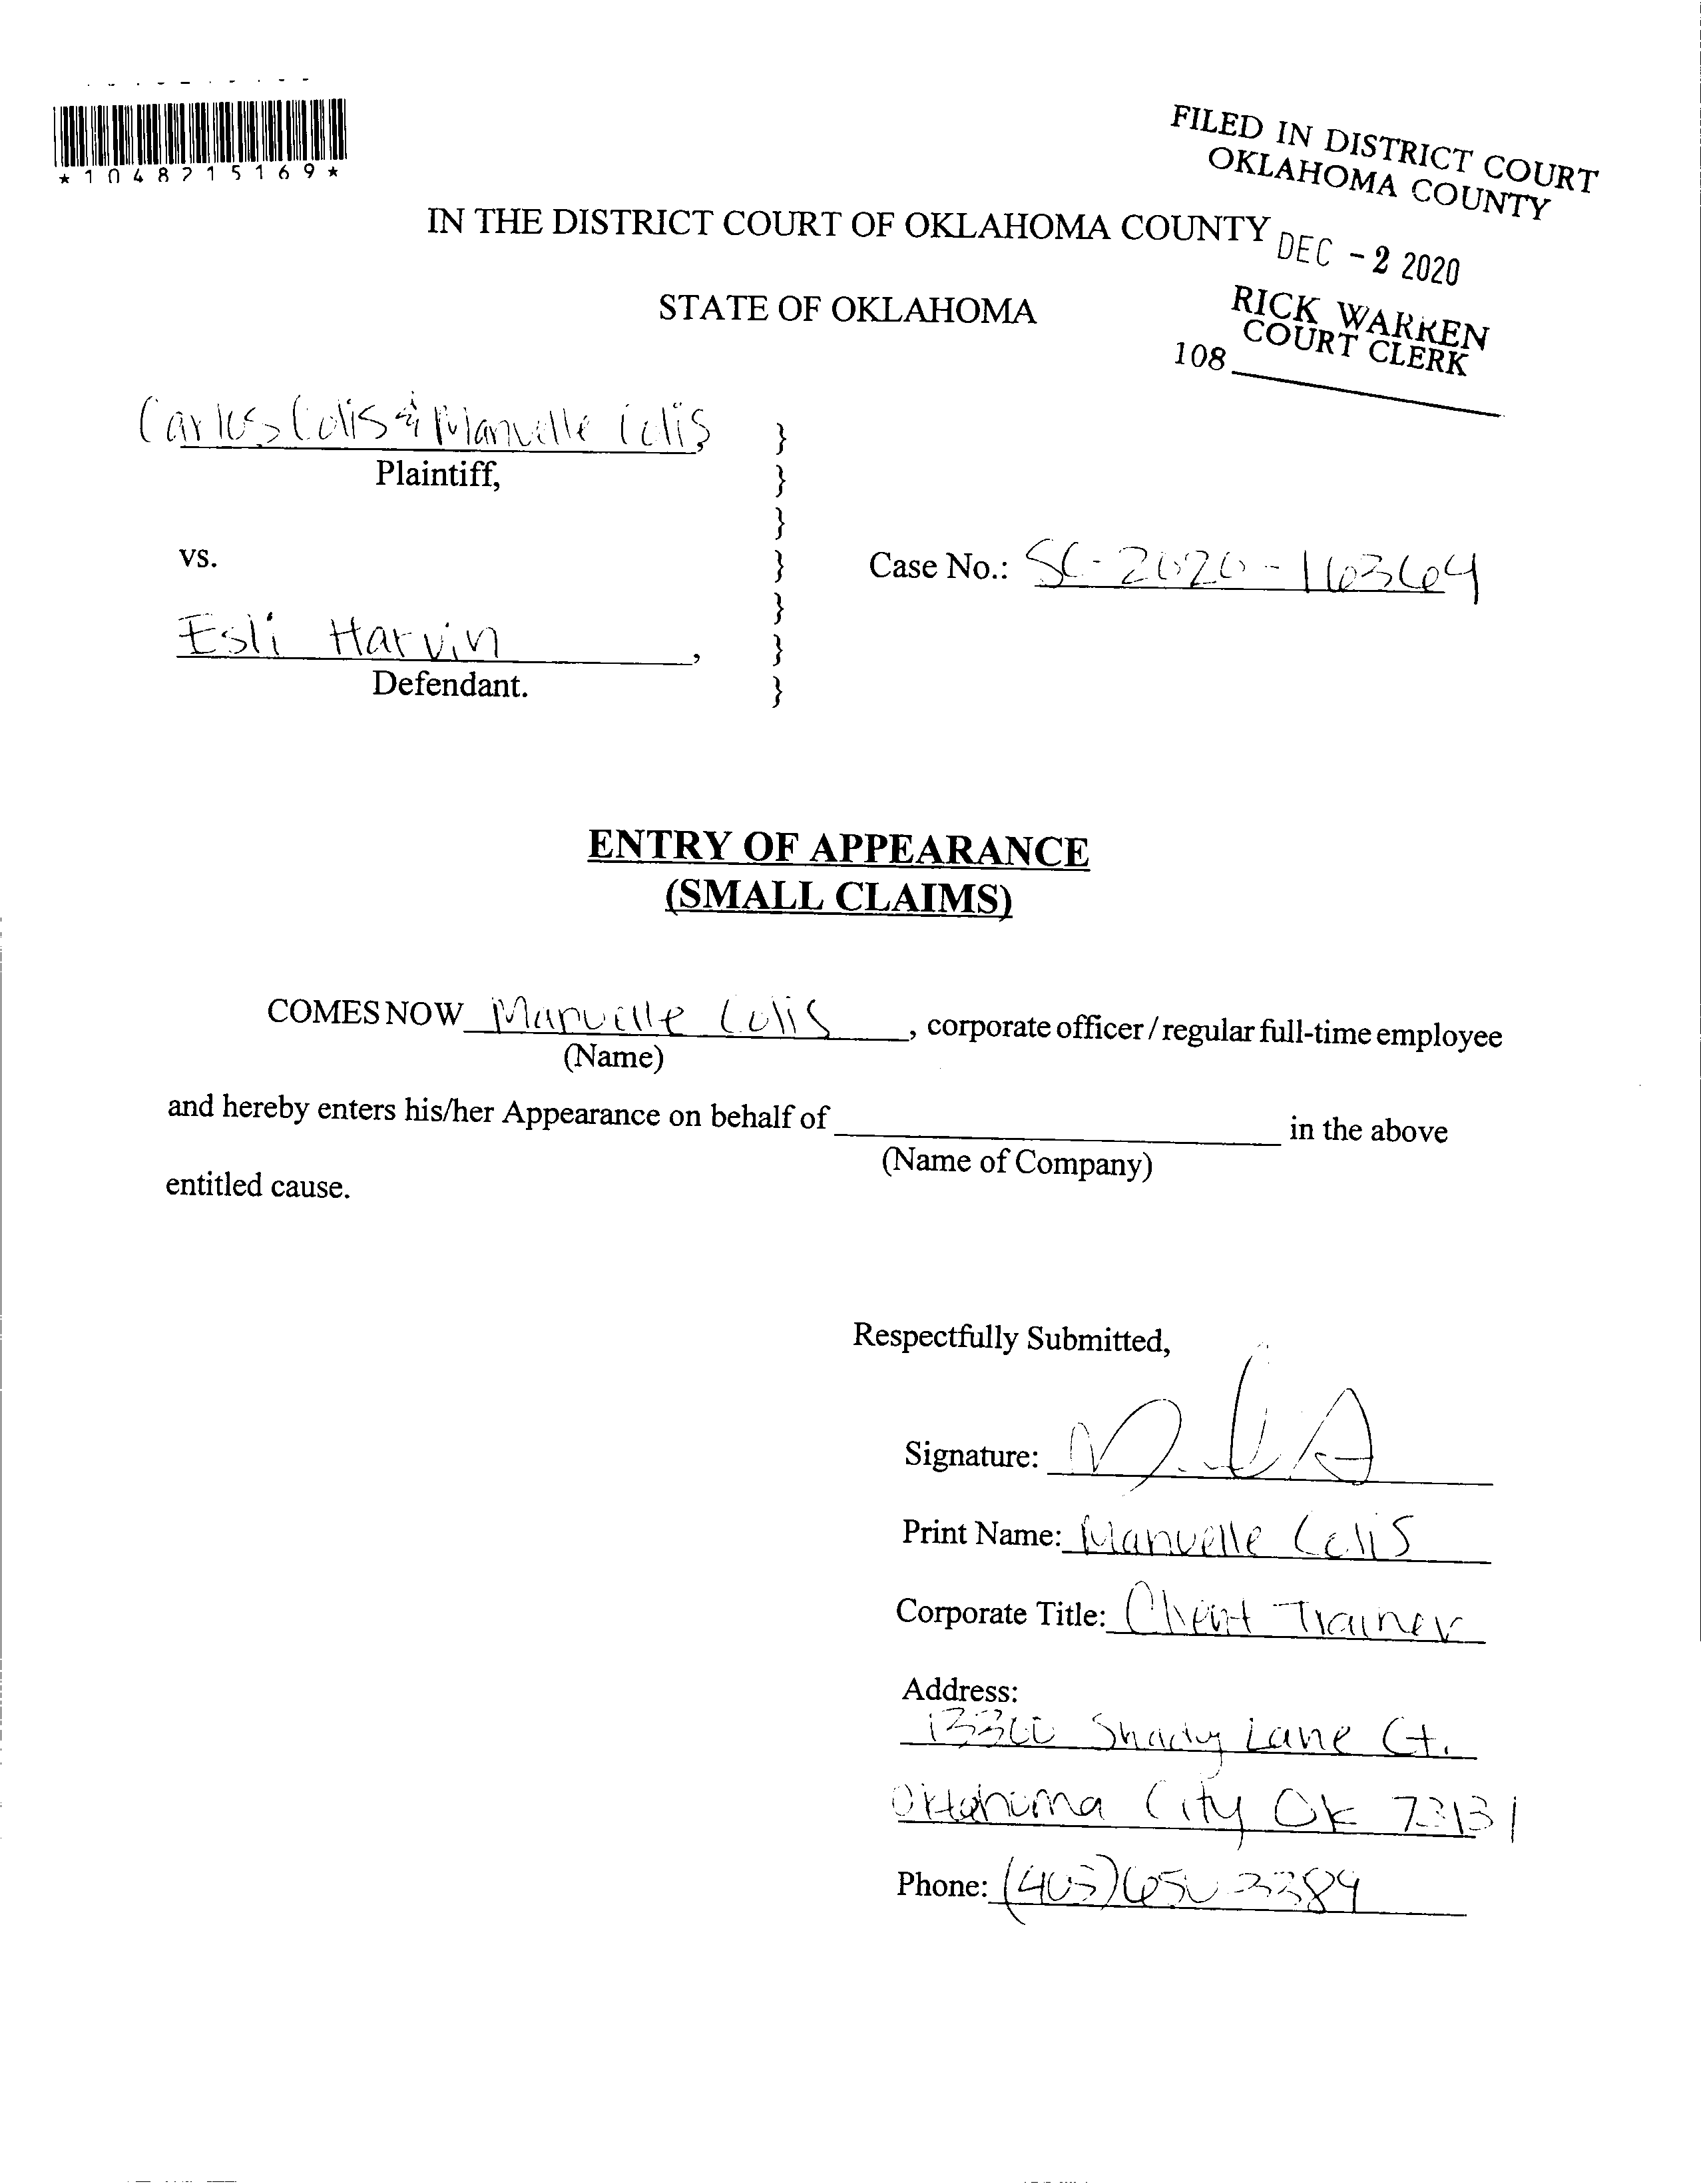 *1048215169*
FILED IN DISTRICT COURT
OKLAHOMA COUNTY
DEC - 2 2020
RICK WARREN
COURT CLERK
108
IN THE DISTRICT COURT OF OKLAHOMA COUNTY
STATE OF OKLAHOMA
Carlos Colis & Manuelle Colis,
Plaintiff,
vs.
Case No.: SC-2020-16364
Esli Harvin,
Defendant.
}
}
}
}
}
}
}
ENTRY OF APPEARANCE
(SMALL CLAIMS)
COMES NOW Manuelle Colis, corporate officer / regular full-time employee
(Name)
and hereby enters his/her Appearance on behalf of in the above
(Name of Company)
entitled cause.
Respectfully Submitted,
Signature:
Print Name: Manuelle Colis
Corporate Title: Client Trainer
Address:
13300 Shady Lane Ct.
Oklahoma City Ok 73131
Phone: (405) 650 3389